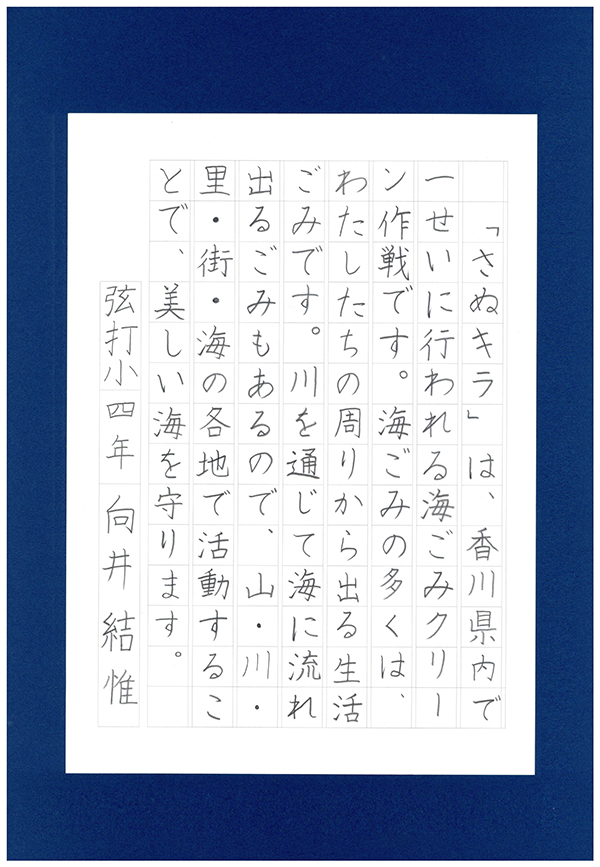 「さぬキラ」は、香川県内で
一せいに行われる海ごみクリー
ン作戦です。海ごみの多くは、
わたしたちの周りから出る生活
ごみです。川を通じて海に流れ
出るごみもあるので、山・川・
里・街・海の各地で活動するこ
とで、美しい海を守ります。
弦打小四年 向井結惟